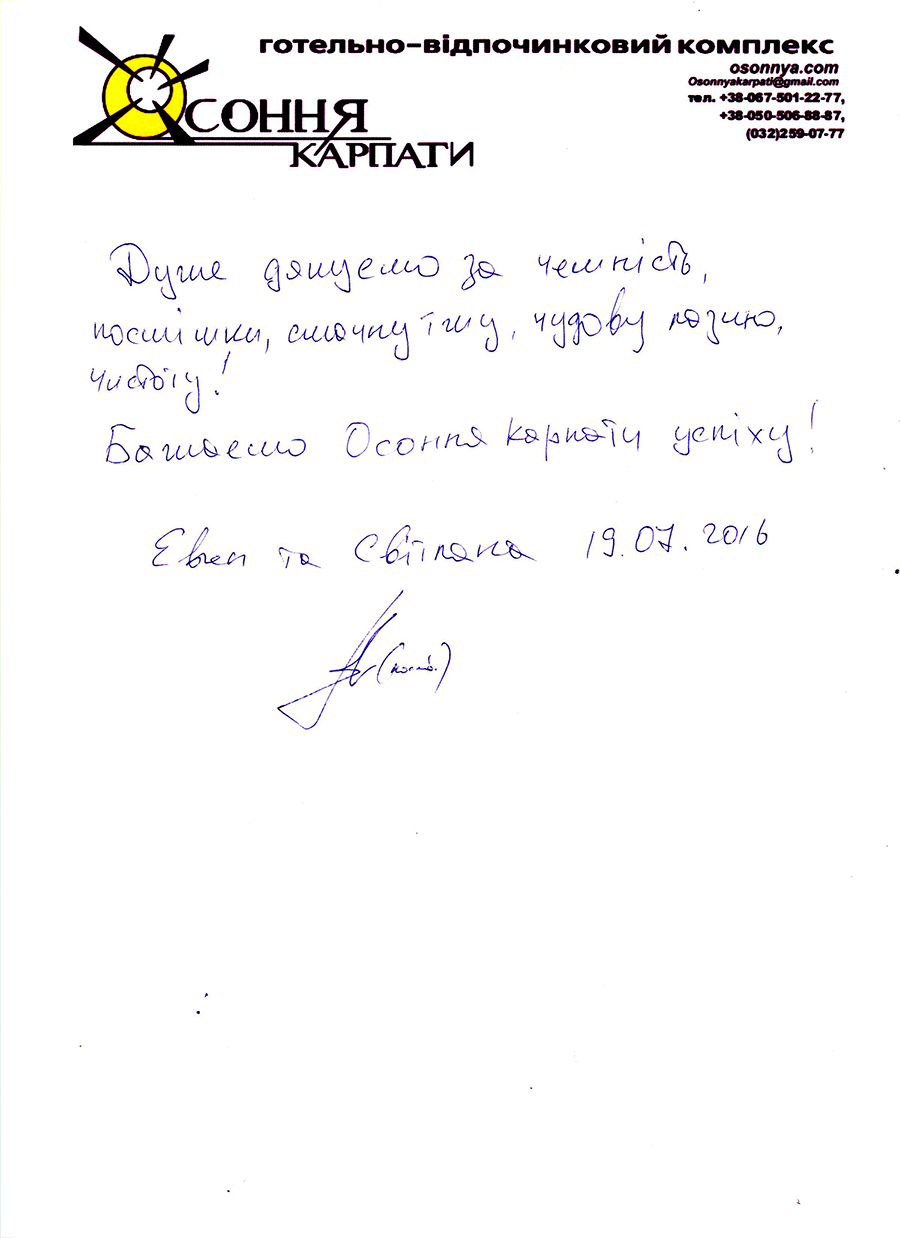 готельно-відпочинковий комплекс
osonnya.com
Osonnyakarpati@gmail.com
тел. +38-067-501-22-77,
+38-050-506-88-87,
(032)259-07-77
ОСОННЯ
КАРПАТИ
Дуже дякуємо за чемність,
посмішки, смачну їжу, чудову лазню,
чистоту!
Бажаємо Осоння Карпати успіху!
Евген та Світлана 19.07.2016